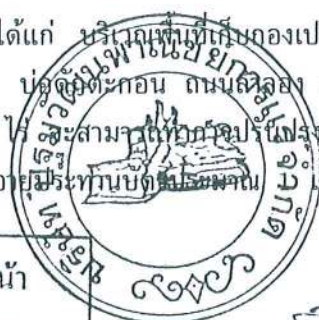 ได้แก่ บริเวณพื้นที่เก็บกองเป
บ่อดักตะกอน ถนนลำลอง
ไร่ จะสามารถทำการปรับปรุง
อายุประทานบัตรประมาณ
น้า
บริษัท ศิริมาวัฒนพาณิชย์การแร่ จำกัด